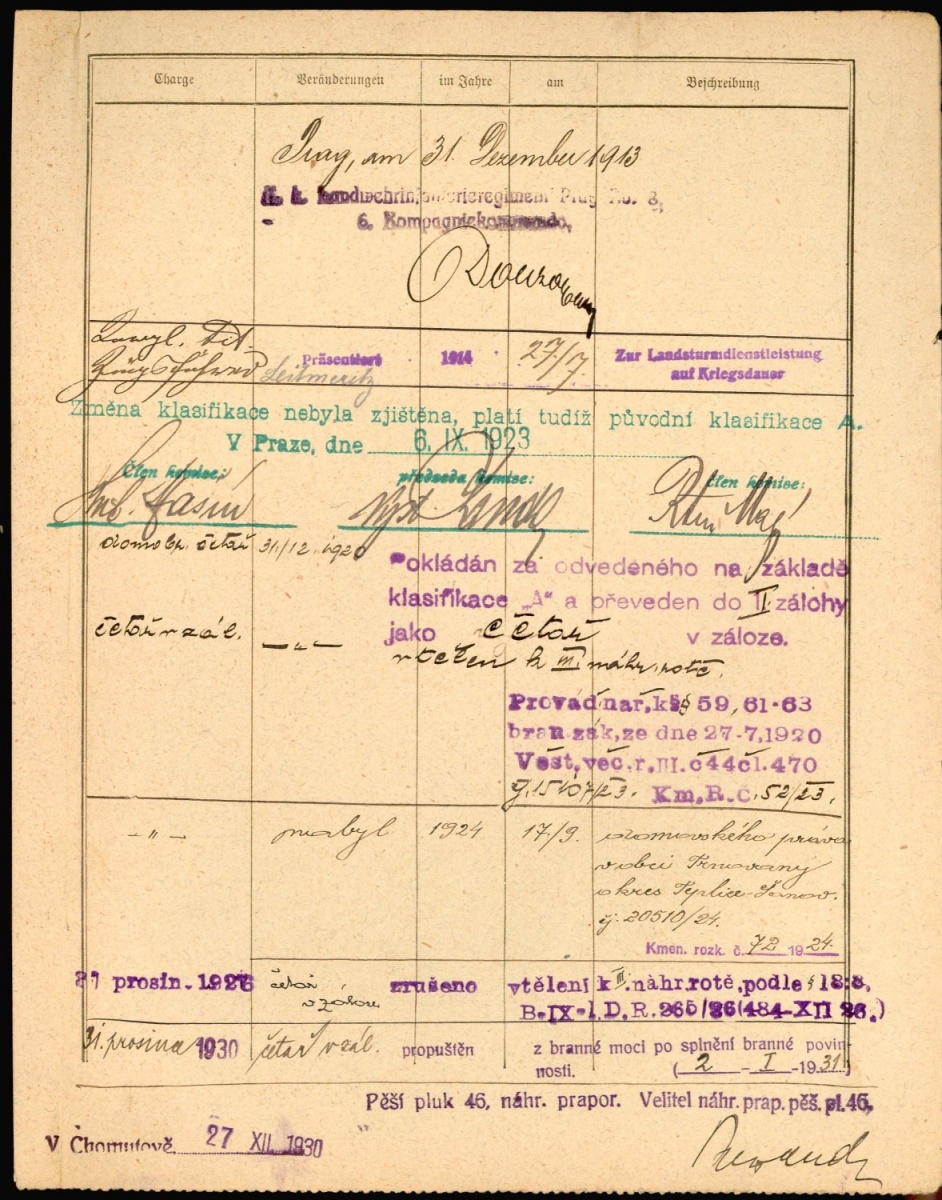 Charge Veränderungen im Jahre am Beschreibung
Prag, am 31. Dezember 1913
k. k. Landwehrinfanterieregiment Prag No. 8,
6. Kompagniekommando,
Tit.
Zugsführer Präsentiert 1914 27/7 Zur Landsturmdienstleistung
Leitmeritz auf Kriegsdauer
Změna klasifikace nebyla zjištěna, platí tudíž původní klasifikace A.
V Praze, dne 6. IX. 1923
Člen komise: předseda komise: člen komise:
domobr. četař 31/12. 1920
Pokládán za odvedeného na základě
klasifikace „A" a převeden do II zálohy
jako četař v záloze.
četař v zál. —„—
vtělen k III. náhr. rotě.
Prováď nař. k §§ 59, 61-63
bran zák, ze dne 27-7, 1920
Věst, věc. r. III. č 44 čl. 470
Km. R. č. 52/23.
—„— nabyl 1924 17/9. domovského práva
v obci Trnovany
okres Teplice-Šanov.
čj. 20510/24.
Kmen. rozk. č. 72 1924.
31 prosin. 1926 četař v záloze zrušeno vtělení k III. náhr. rotě, podle § 18:8,
B-IX-1. D. R. 265/26 (484-XII 26.)
31. prosince 1930 četař v zál. propuštěn z branné moci po splnění branné povin
nosti. (2 - I - 1931)
Pěší pluk 46, náhr. prapor. Velitel náhr. prap. pěš. pl. 46,
V Chomutově. 27 XII. 1930